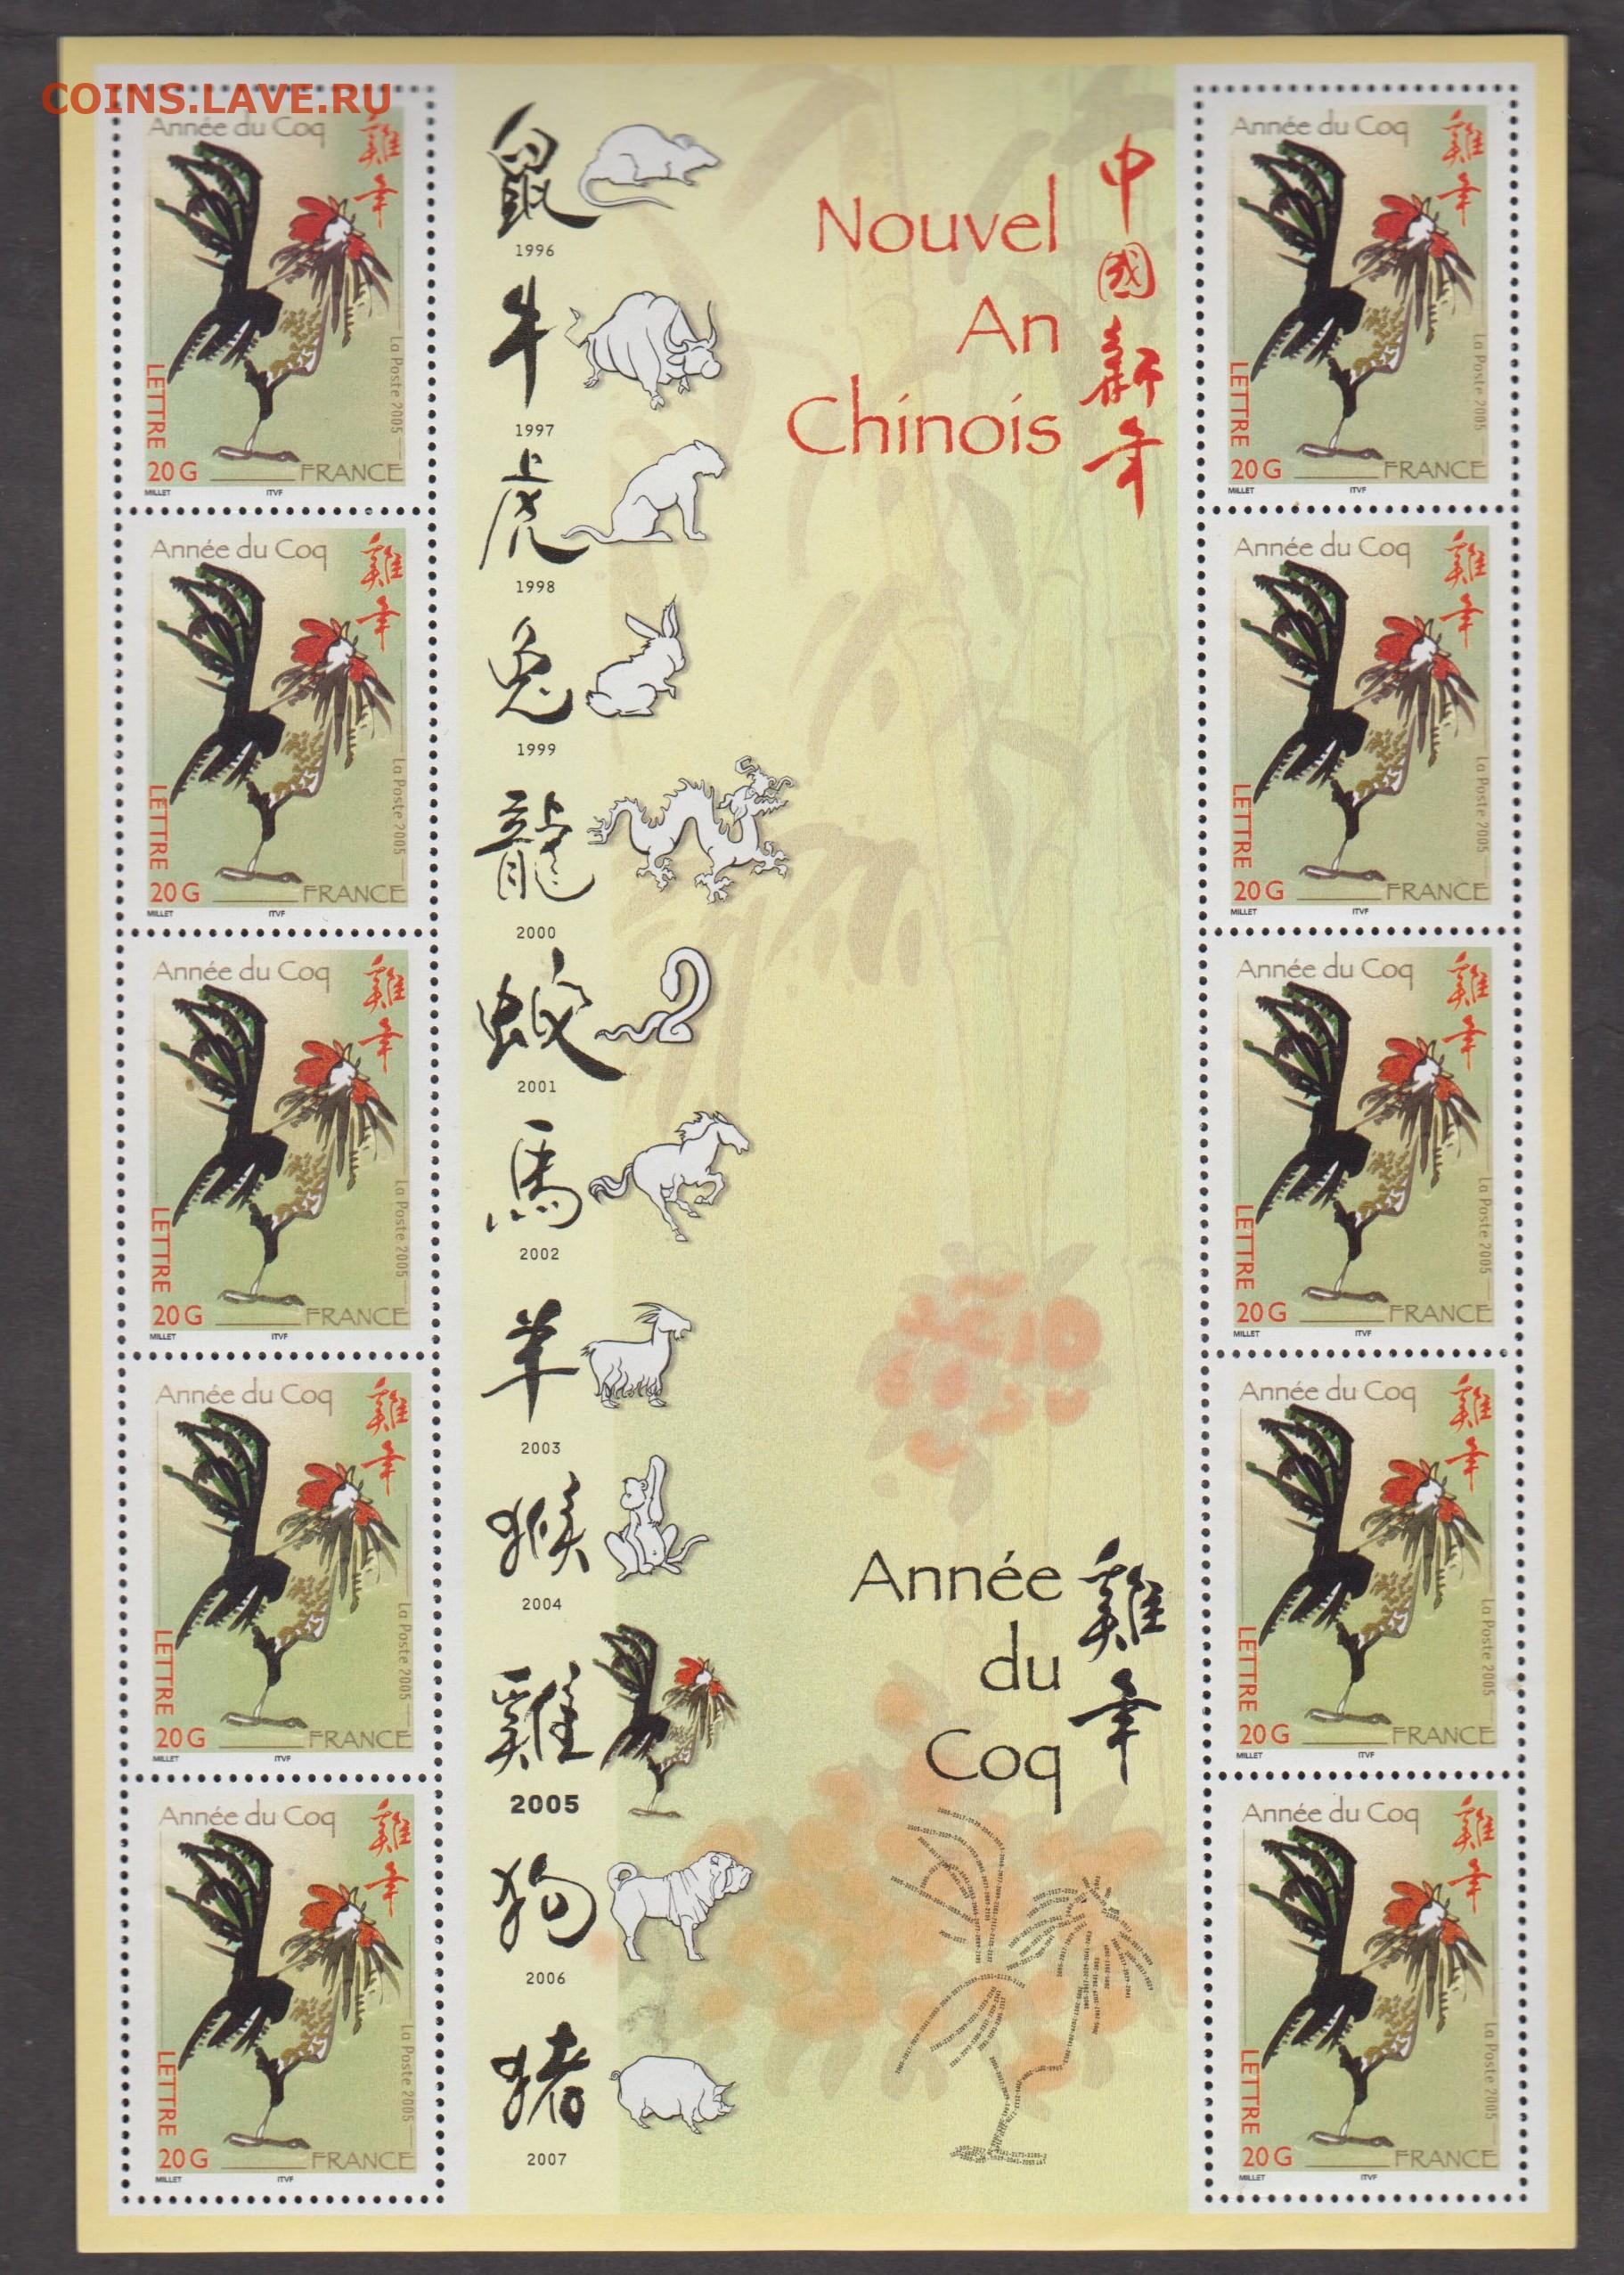 COINS.LAVE.RU
Année du Coq
雞年
La Poste 2005
LETTRE
20 G FRANCE
MILLET ITVF
Année du Coq
雞年
La Poste 2005
LETTRE
20 G FRANCE
MILLET ITVF
Année du Coq
雞年
La Poste 2005
LETTRE
20 G FRANCE
MILLET ITVF
Année du Coq
雞年
La Poste 2005
LETTRE
20 G FRANCE
MILLET ITVF
Année du Coq
雞年
La Poste 2005
LETTRE
20 G FRANCE
MILLET ITVF
鼠
1996
牛
1997
虎
1998
兔
1999
龍
2000
2001
馬
2002
羊
2003
猴
2004
雞
2005
狗
2006
猪
2007
Nouvel
An
Chinois
中國新年
Année
du
Coq
雞年
Année du Coq
雞年
La Poste 2005
LETTRE
20 G FRANCE
MILLET ITVF
Année du Coq
雞年
La Poste 2005
LETTRE
20 G FRANCE
MILLET ITVF
Année du Coq
雞年
La Poste 2005
LETTRE
20 G FRANCE
MILLET ITVF
Année du Coq
雞年
La Poste 2005
LETTRE
20 G FRANCE
MILLET ITVF
Année du Coq
雞年
La Poste 2005
LETTRE
20 G FRANCE
MILLET ITVF